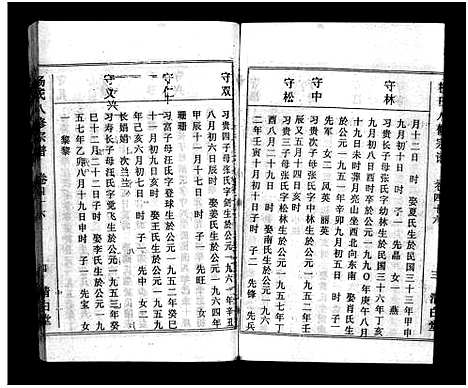 守林
月十二日 时 娶夏氏生於民国三十三年甲申
九月初十日 时 子一 先晶 女二
习贵长子母张氏字幼林生於民国三十六年丁亥
八月初七日酉时卒於公元一九八〇年庚申八月
十九日未时葬月亮山坐西北向东南 娶肖氏生
於公元一九五一年辛卯九月初五日 时 子一
先军 女二 凤英 丽英
守中
习贵次子母张氏字中林生於公元一九五二年壬
辰又五月十四日亥时
守松
习贵三子母张氏字松林生於公元一九五七年丁
酉八月二十九日 时 娶南氏生於公元一九六
二年壬寅十月初十日子时 子二 先锋 先兵
守双
习贵四子母张氏字剑生於公元一九六一年辛丑
八月初六日辰时 娶姜氏生於公元一九六四年
甲辰十一月十七日 时 子一 先旺 女一
珊珊
守仁
习富子母汪氏字登球生於公元一九五三年癸巳
十一月初九日亥时 娶王氏生於公元一九五九
年己亥六月初九日 时 子一 先中 女二
长娟娟 次兰兰
守义兴
习寿长子母汪氏字觉飞生於公元一九五三年癸
巳十二月二十二日亥时 娶李氏生於公元一九
五七年乙 八月十九日申时 子一 先宝 女
一 黎黎
杨氏八修宗谱 卷四十六
九 清白堂